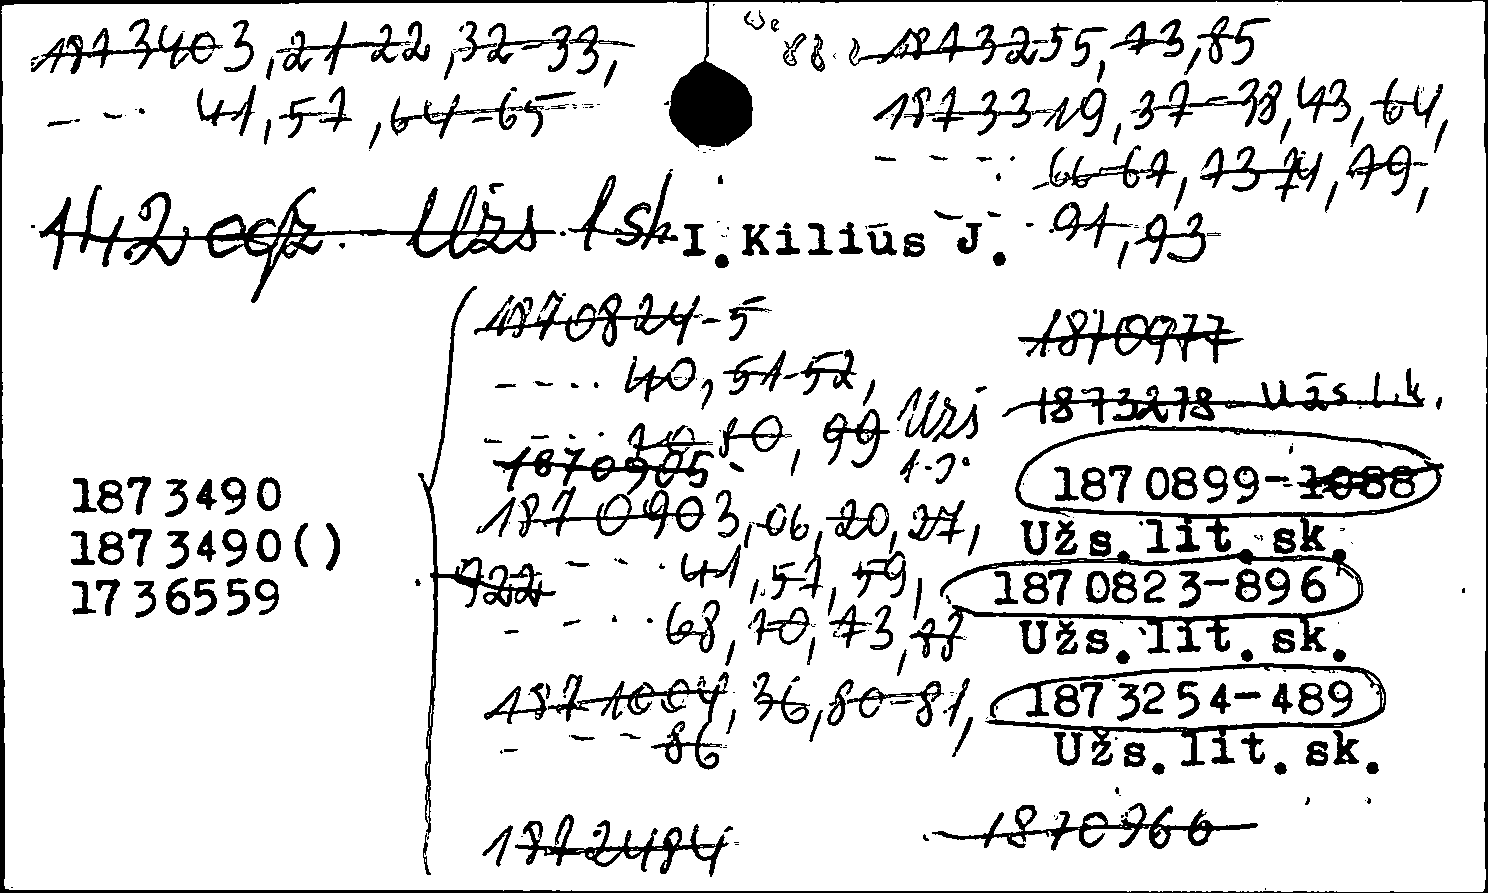 1873403, 21-22, 32-33,
--- 41, 57, 64-65
1873255, 73, 85
1873319, 37-38, 43, 64,
---- 66-67, 73 74, 79,
-- 91, 93
142 egz. - Užs l sk
I. Kilius J.
1870824-5
---- 40, 51-52,
---- 70 80, 99 Užs
1870905-
1870903, 06, 20, 27,
922 --- 41, 57, 59,
---- 68, 70, 73, 88
1871004, 36, 80-81,
---- 86
1872484
1870977
1873278 - Užs l.k.
1870899-1088
Užs.lit.sk.
1870823-896
Užs.lit.sk.
1873254-489
Užs.lit.sk.
1870966
1873490
1873490()
1736559